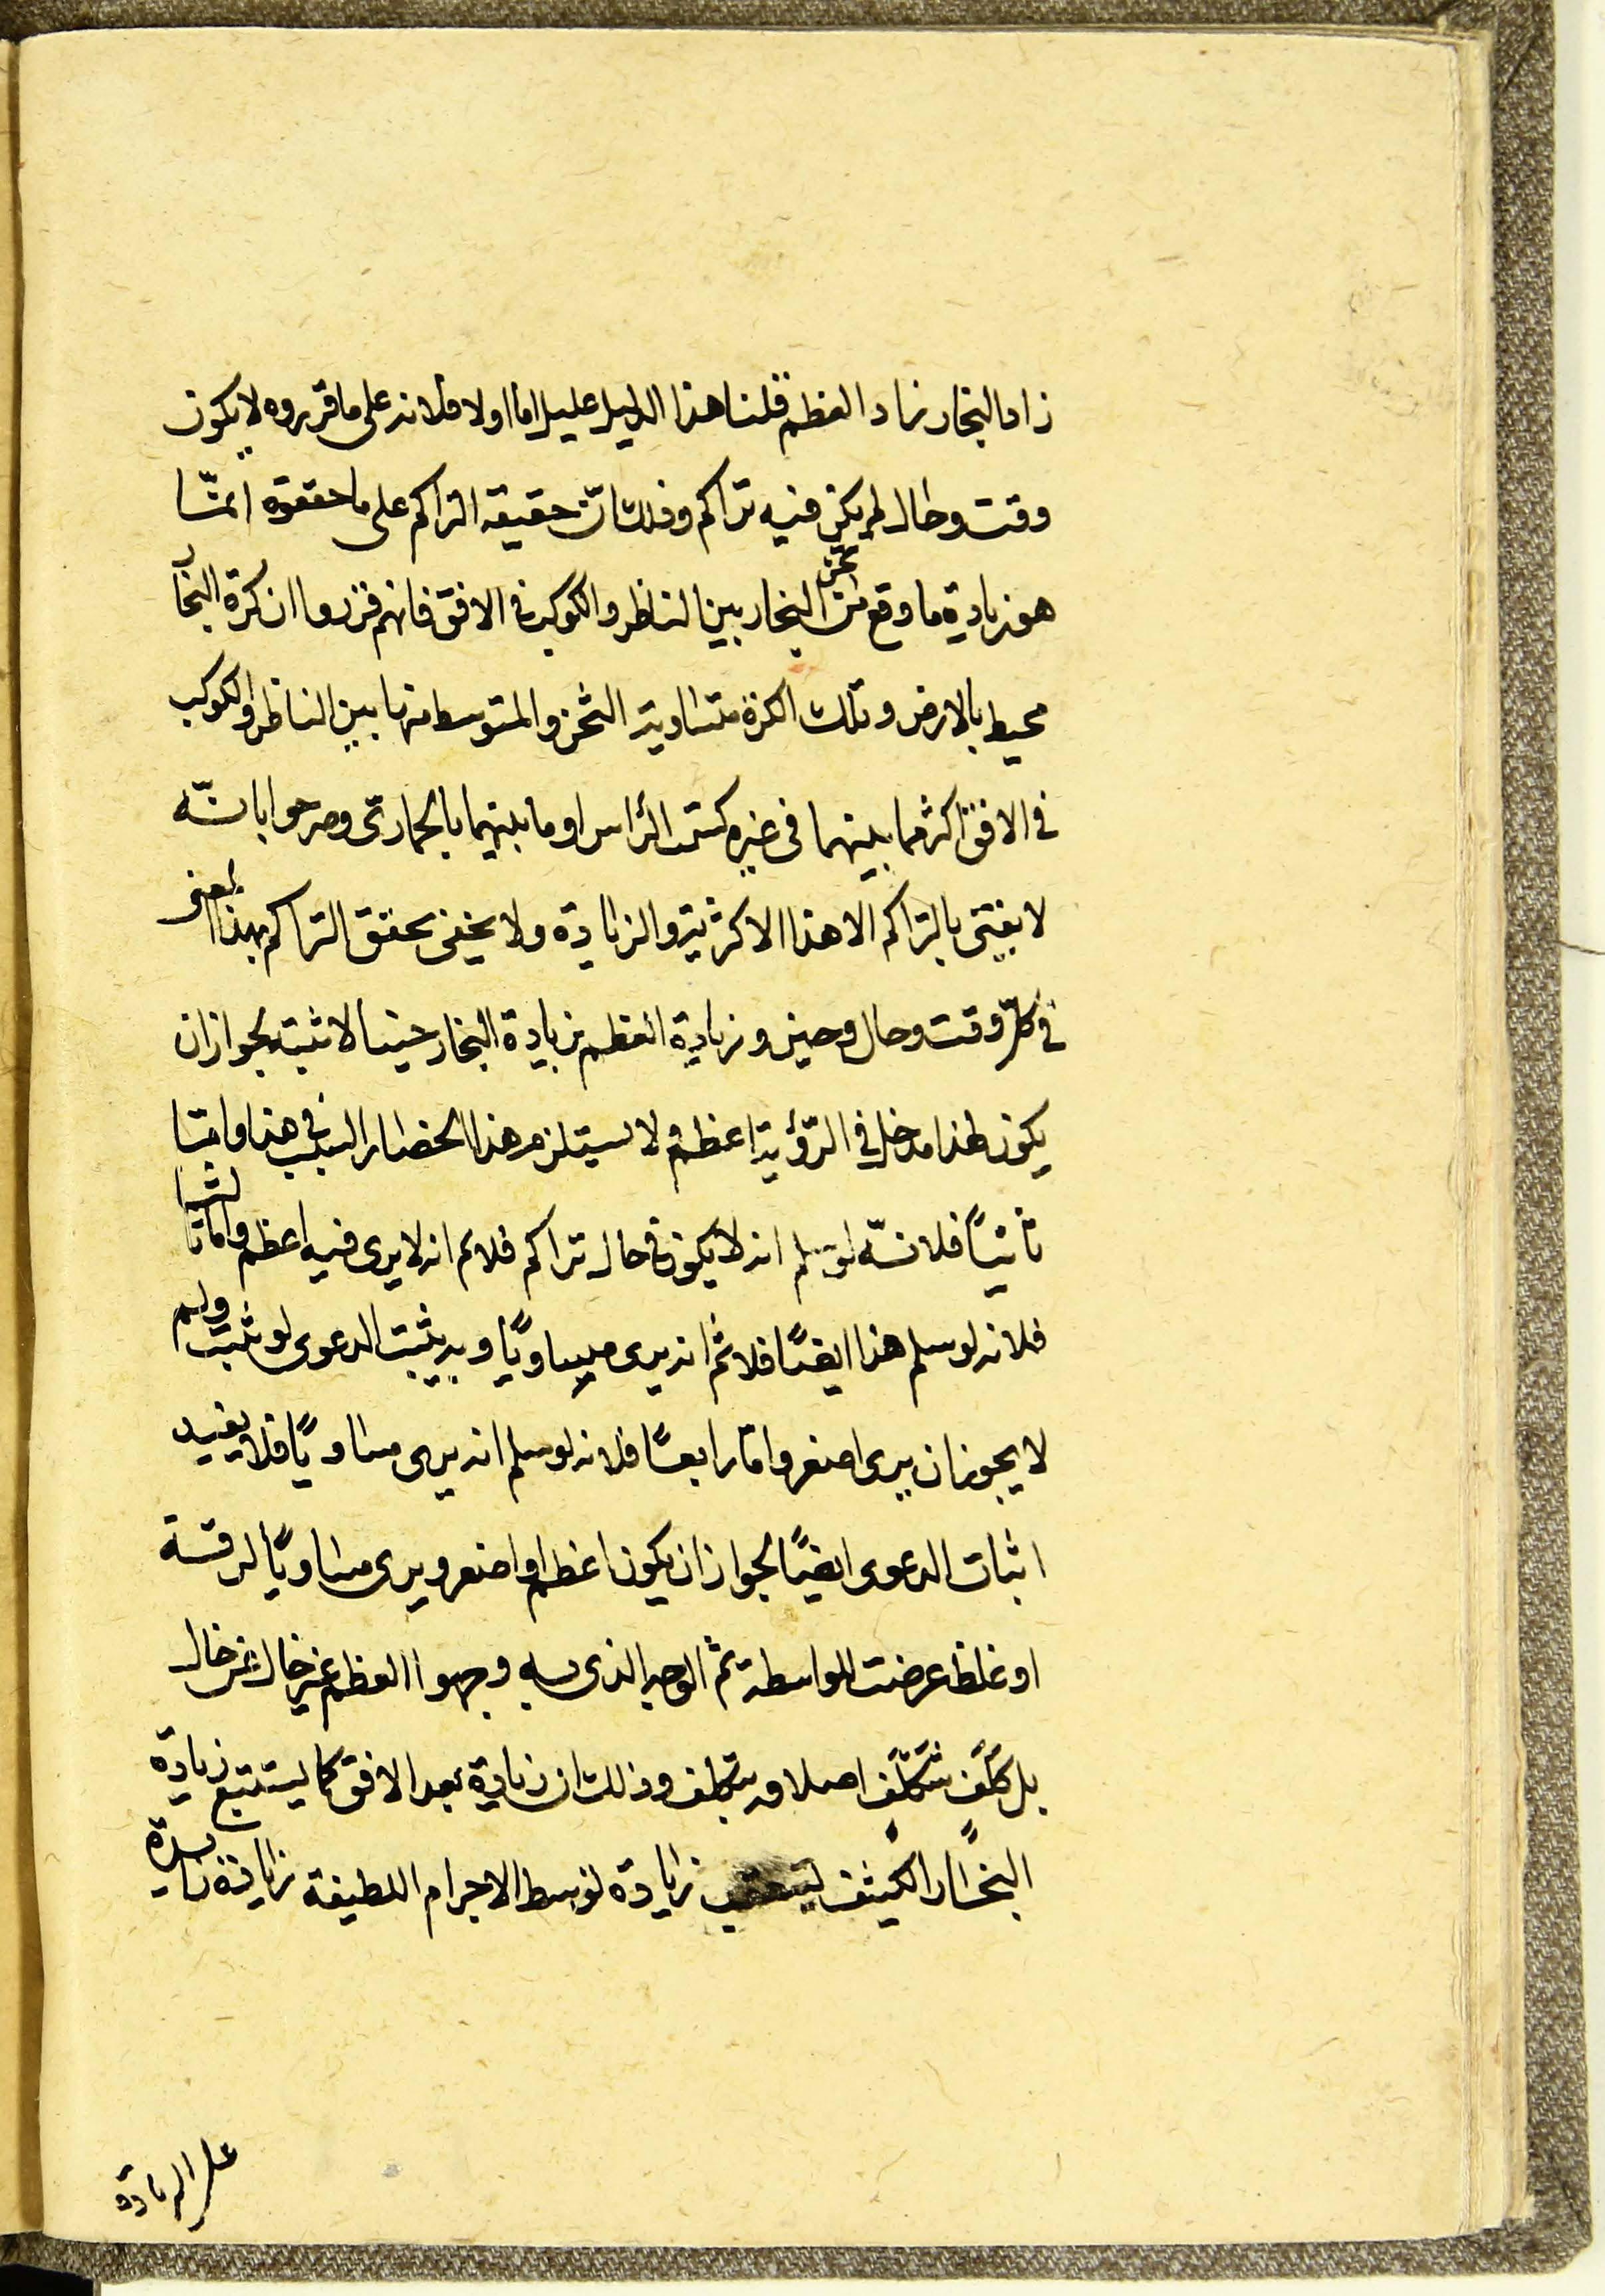 زاد البخار زاد العظم قلنا هذا الدليل عليل اما اولا فلانه على ما قرروه لا يكون
وقت وحال لم يكن فيه تراكم وذلك انّ حقيقة التراكم على ما حققوه انّما
هو زيادة ما وقع من ثخن البخار بين الناظر والكوكب في الافق فانهم قرروا ان كرة البخار
محيط بالارض وتلك الكرة متساوية الثخن والمتوسط منها بين الناظر والكوكب
في الافق اكثر مما بينهما في غيره كسمت الرأس او ما بينهما بالجمارى وصرحوا بانّه
لا يعنى بالتراكم الا هذا الاكثرية والزيادة ولا يخفى تحقق التراكم بهذا المعنى
في كلّ وقت وحال وحين وزيادة العظم بزيادة البخار حينئذ لا تثبت لجواز ان
يكون لهذا مدخل في الرّؤية اعظم ولا يستلزم هذا انحصار السبب في هذا وامّا
ثانيًا فلانّه لو سلم انه لا يكون في حال تراكم فلانم انه لا يرى فيه اعظم وامّا ثالثا
فلانه لو سلم هذا ايضًا فلانم انه يرى مساويًا وبه يثبت الدعوى لو ثبت ولم
لا يجوز ان يرى اصغر وامّا رابعًا فلانه لو سلم انه يرى مساويًا فلا يفيد
اثبات الدعوى ايضًا لجواز ان يكون اعظم او اصغر ويرى مساويًا لرقة
او غلظ عرضت للواسطة ثم الوجه الذى به وجهوا العظم غير خال عن خال
بل كلف متكلّف اصلا وبتكلف وذلك ان زيادة بعد الافق كما يستتبع زيادة
البخار الكثيف زيادة توسط الاجرام اللطيفة زيادة
على الزيادة